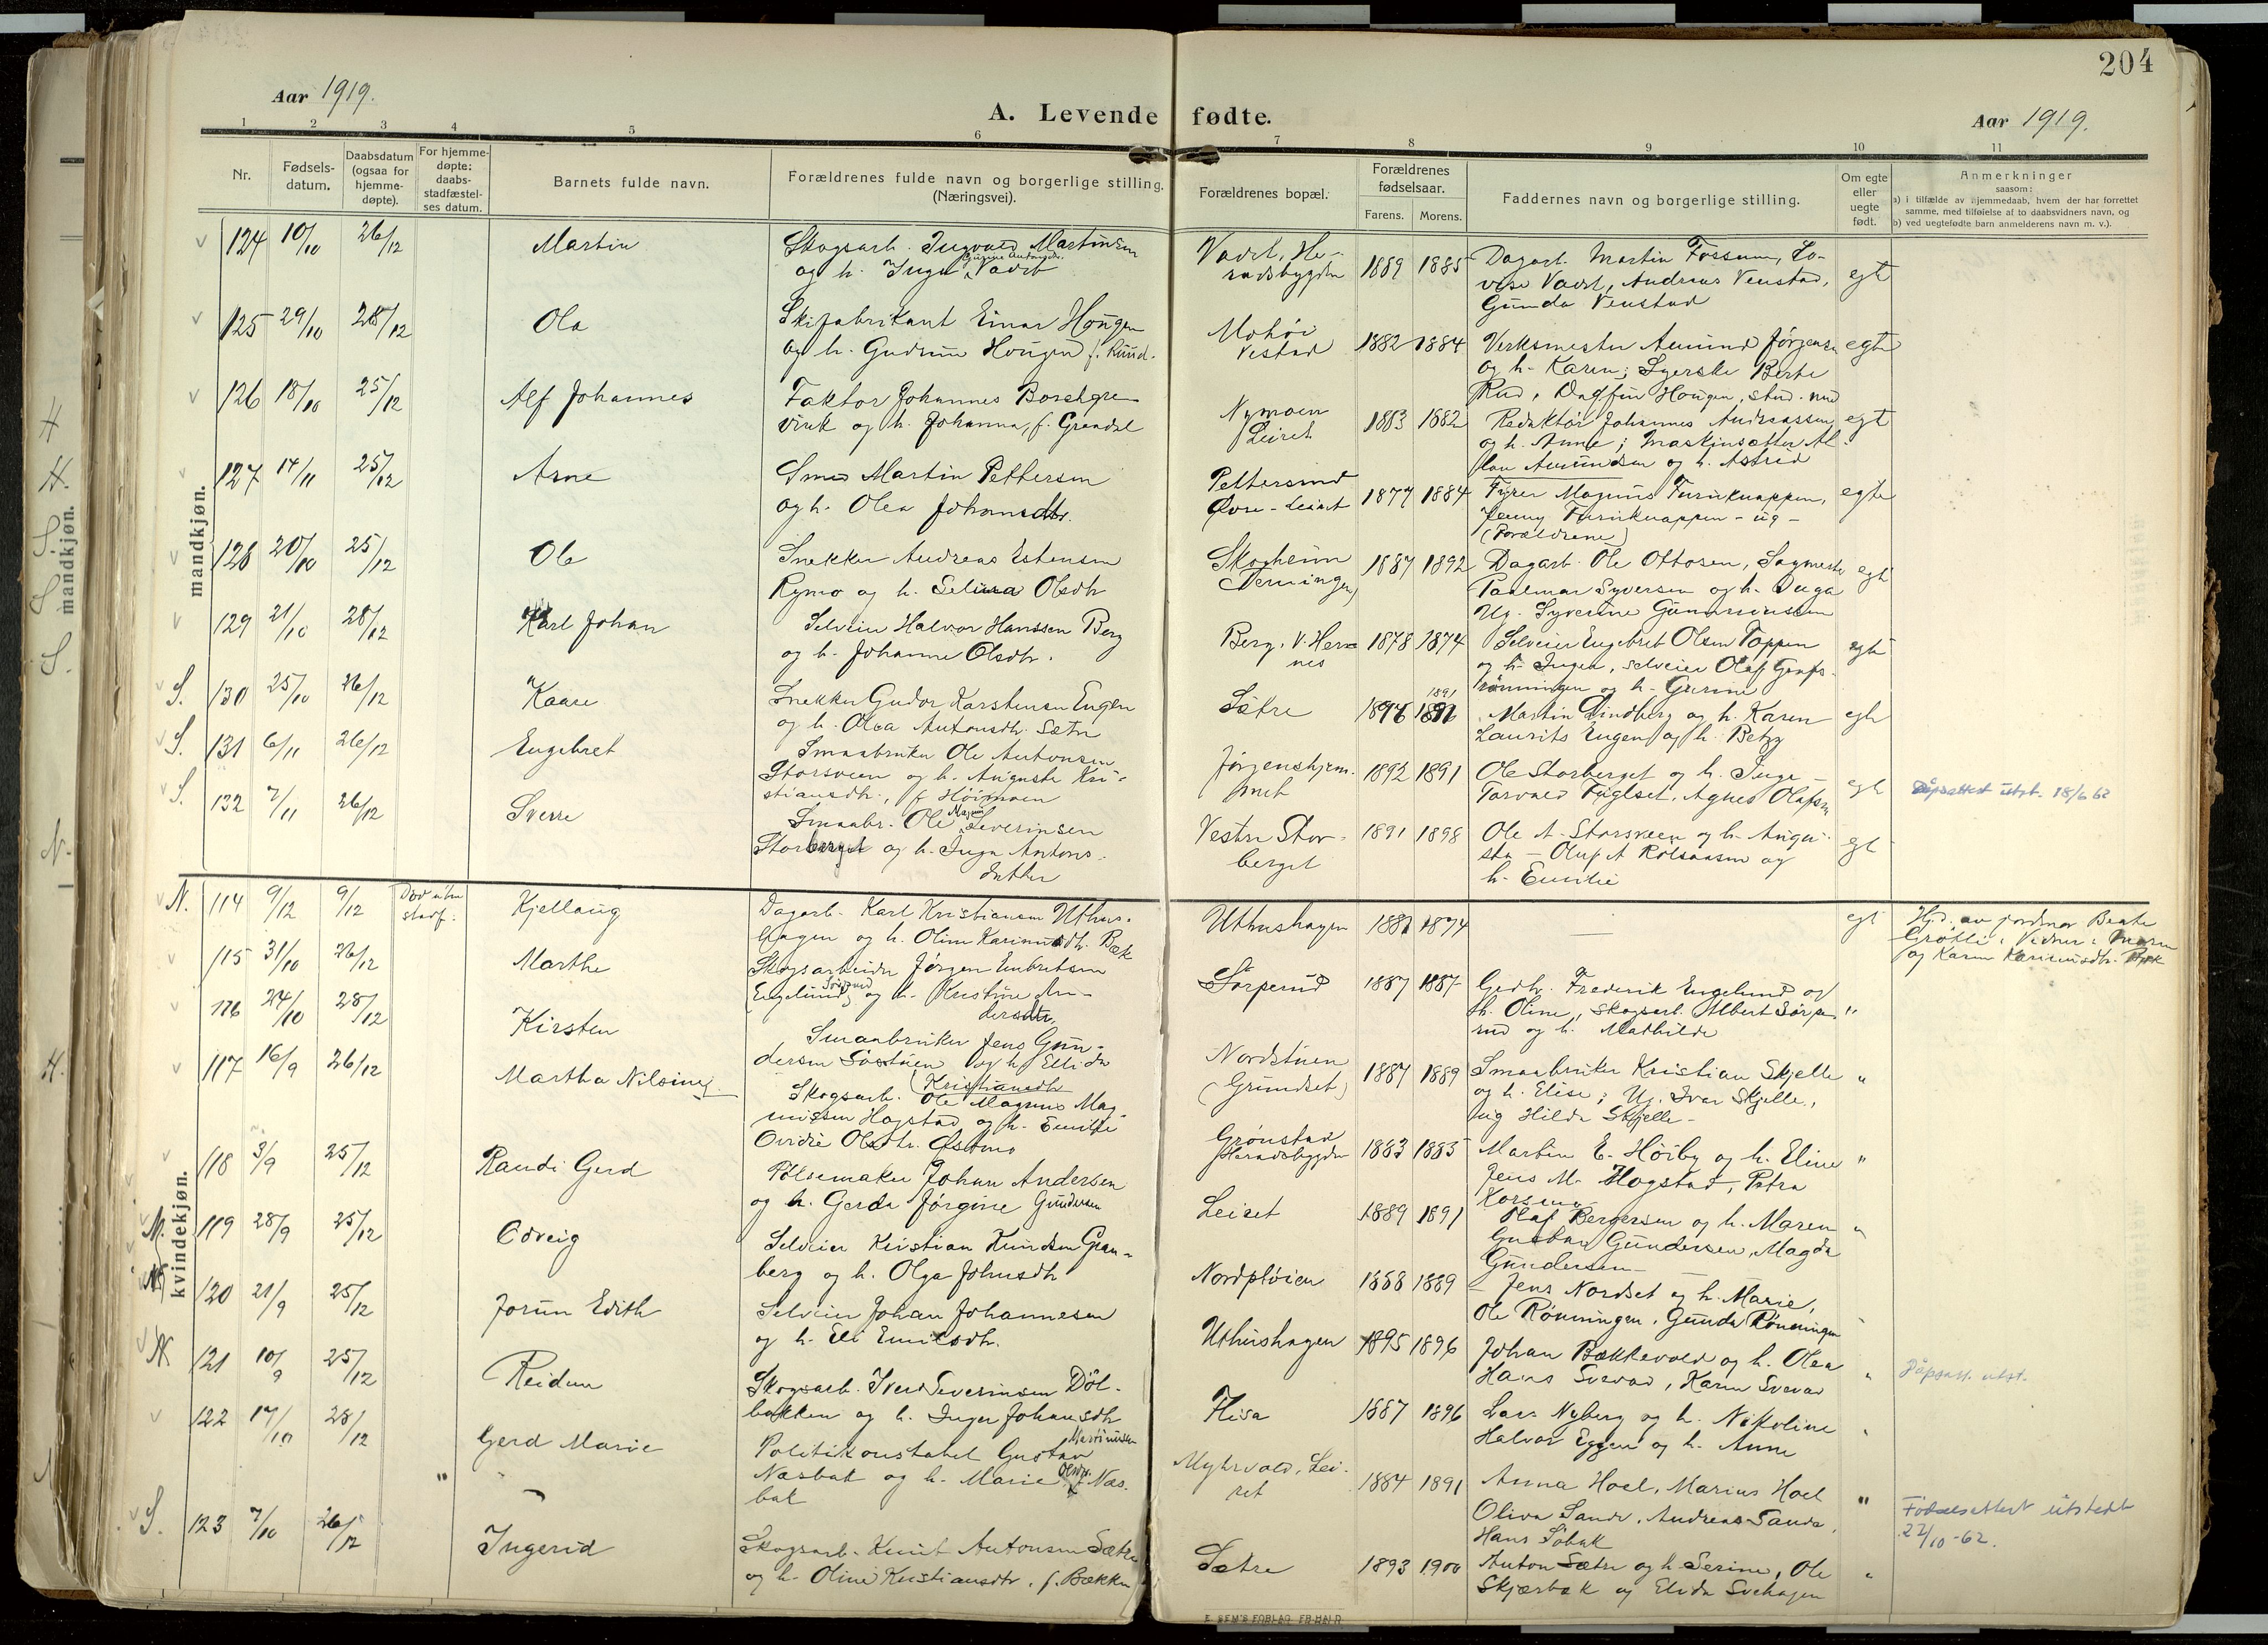 204
Aar 1919.
A. Levende fødte.
Aar 1919.
1 2 3 4 5 6 7 8 9 10 11
Nr.
Fødsels-
datum.
Daabsdatum
(ogsaa for
hjemme-
døpte).
For hjemme-
døpte:
daabs-
stadfæstel-
ses datum.
Barnets fulde navn.
Forældrenes fulde navn og borgerlige stilling.
(Næringsvei).
Forældrenes bopæl.
Forældrenes
fødselsaar.
Farens. Morens.
Faddernes navn og borgerlige stilling.
Om egte
eller
uegte
født.
Anmerkninger
saasom:
a) i tilfælde av hjemmedaab, hvem der har forrettet
samme, med tilføielse af to daabsvidners navn, og
b) ved uegtefødte barn anmelderens navn m. v.).
mandkjøn.
124 10/10 26/12 Martin
Skogsarb. Ingvald Martinsen
og h. Inga
1889 1885
Dagarb. Martin Fossum, Lo-
vise Andreas Venstad,
Gunda Venstad
egt
125 29/10 28/12 Ola
Skifabrikant Einar Hougen
og h. Gudrun Hougen f. Ruud.
Mohöi
Vestad
1882 1884
Verksmester Amund Jörgensen
og h. Karen; Syerske Berte
Rud, Dagfin Hougen, stud. med
egte
126 18/10 25/12 Alf Johannes
Faktor Johannes Borchgre-
vink og h. Johanna, f. Grendal
Nymoen
Leiret
1883 1882
Redaktör Johannes Andreassen
og h. Anne; Maskinsætter Al-
Amundsen og h. Astrid
egt
127 14/11 25/12 Arne
Smed Martin Pettersen
og h. Olea Johansdtr.
Pettersmd
Øvre-Leiret
1877 1884
Fyrer Magnus Furuknappen,
Jenny Furuknappen - ug -
(Forældrene)
egte
128 20/10 25/12 Ole
Snekker Andreas Estensen
Rymo og h. Selina Olsdtr
Skogheim
Terningen)
1887 1892
Dagarb. Ole Ottosen, Sagmester
Syversen og h. Inga
Ug. Syverine Gunnersensen
egt
129 21/10 28/12 Karl Johan
Selveier Halvor Hanssen Berg
og h. Johanne Olsdtr.
Berg, V. Her-
nes
1878 1874
Selveier Engebret Olsen Toppen
og h. Inger, selveier Olaf
rönningen og h. Gurine
egte
S. 130 25/10 26/12 Kaare
Snekker Gudor Karstensen Engen
og h. Olea Antonsdtr. Sætre
Sætre
1891
Martin Lindberg og h. Karen
Laurits Engen og h. Betzy
egte
S. 131 6/11 26/12 Engebret
Smaabruker Ole Antonsen
Storsveen og h. Auguste Kri-
stiansdtr., f. Höimoen
1892 1891
Ole Storberget og h. Inga -
Torvald Fuglset, Agnes Olafsen
egte
Dåpsattest utst. 18/6 62
S. 132 7/11 26/12 Sverre
Smaabr. Ole Severinsen
Storberget og h. Inga Antons-
datter
Vestre Stor-
berget
1891 1898
Ole A. Storsveen og h. Augu-
sta - Oluf A Rölsaasen og
h. Emilie
egt
kvindekjøn.
N. 114 9/12 9/12 Död uten
stadf. Kjellaug
Dagarb. Karl Kristiansen Uthus-
hagen og h. Oline Karinusdtr. Bæk
Uthushagen
1881 1874
—
egt
Hj.d. av jordmor Beate
Grötli: Vidner:
og Karen Karinusdtr. Bæk
115 31/10 26/12 Marthe
Skogsarbeider Jörgen Embretsen
Engelund og h. Kristine An-
dersdtr.
Sörperud
1887 1887
Gedtr. Frederik Engelund og
h. Oline, skogsarb. Albert Sörpe-
rud og h. Mathilde
"
116 24/10 28/12 Kirsten
Smaabruker Jens Gun-
dersen og h. Ellida
(Kristiansdtr
Nordstuen
(Grundset)
1887 1889
Smaabruker Kristian Skjelle
og h. Elise; Ug. Ivar Skjelle,
ug Hilda Skjelle -
"
117 16/9 26/12 Martha Nilsine
Skogsarb. Ole Magnus Mag-
nussen Hagstad og h. Emilie
Ovidie Olsdtr. Östmo
Grönstad
Heradsbygden
1883 1885
Martin E. Höiby og h. Eline
Jens M. Hogstad, Petra
Korsmo -
"
118 3/9 25/12 Randi Gerd
Pölsemaker Johan Andersen
og h. Gerda Jörgine Gundersen
Leiret
1889 1891
Olaf Bergersen og h. Maren
Gustav Gundersen, Magda
Gundersen -
"
N. 119 28/9 25/12 Odveig
Selveier Kristian Knudsen Gran-
berg og h. Olga Johnsdtr
Nordplöien
1888 1889
Jens Nordset og h. Marie,
Ole Rönningen, Gunda Rönningen
N. 120 21/9 25/12 Jorun Edith
Selveier Johan Johannesen
og h. Eli Emilsdtr.
Uthushagen
1895 1896
Johan Bækkevold og h. Olea
Hans Svevad, Karen Svevad
"
Dåpsatt. utst.
N 121 10/9 25/12 Reidun
Skogsarb. Iver Severinsen Döl-
bakken og h. Inger Johansdtr
Flisa
1887 1896
Lars Nyberg og h. Nikoline
Halvor Eggen og h. Anne
"
122 17/10 28/12 " Gerd Marie
Politikonstabel Gustav
Næsbak og h. Marie Olsdtr. f. Næs-
bak
Myhrvold, Lei-
ret
1884 1891
Anna Hoel, Marius Hoel
Oliva Sande, Andreas Sande,
Hans Söbak
"
Födselsattest utstedt
22/10-62.
S. 123 7/10 26/12 Ingerid
Skogsarb. Knut Antonsen Sætre
og h. Oline Kristiansdtr. f. Bækken
Sætre
1893 1900
Anton Sætre og h. Serine, Ole
Skjærbæk og Elida Svehagen
"
E. SEM'S FORLAG. FR.HALD